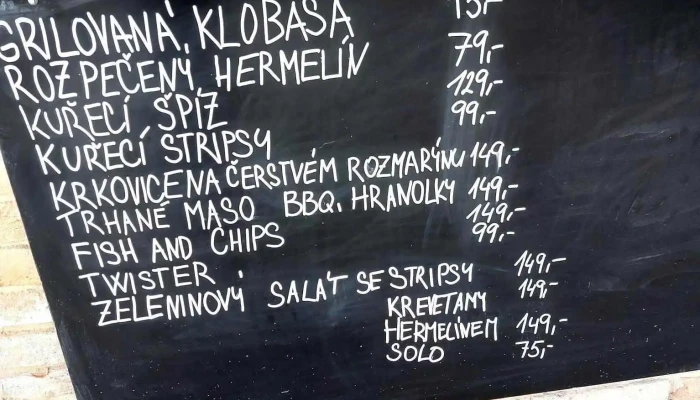 GRILOVANÁ KLOBÁSA 75,-
ROZPEČENÝ HERMELÍN 79,-
KUŘECÍ ŠPÍZ 129,-
KUŘECÍ STRIPSY 99,-
KRKOVICE NA ČERSTVÉM ROZMARÝNU 149,-
TRHANÉ MASO BBQ, HRANOLKY 149,-
FISH AND CHIPS 149,-
TWISTER 99,-
ZELENINOVÝ SALÁT SE STRIPSY 149,-
KREVETAMY 149,-
HERMELÍNEM 149,-
SOLO 75,-